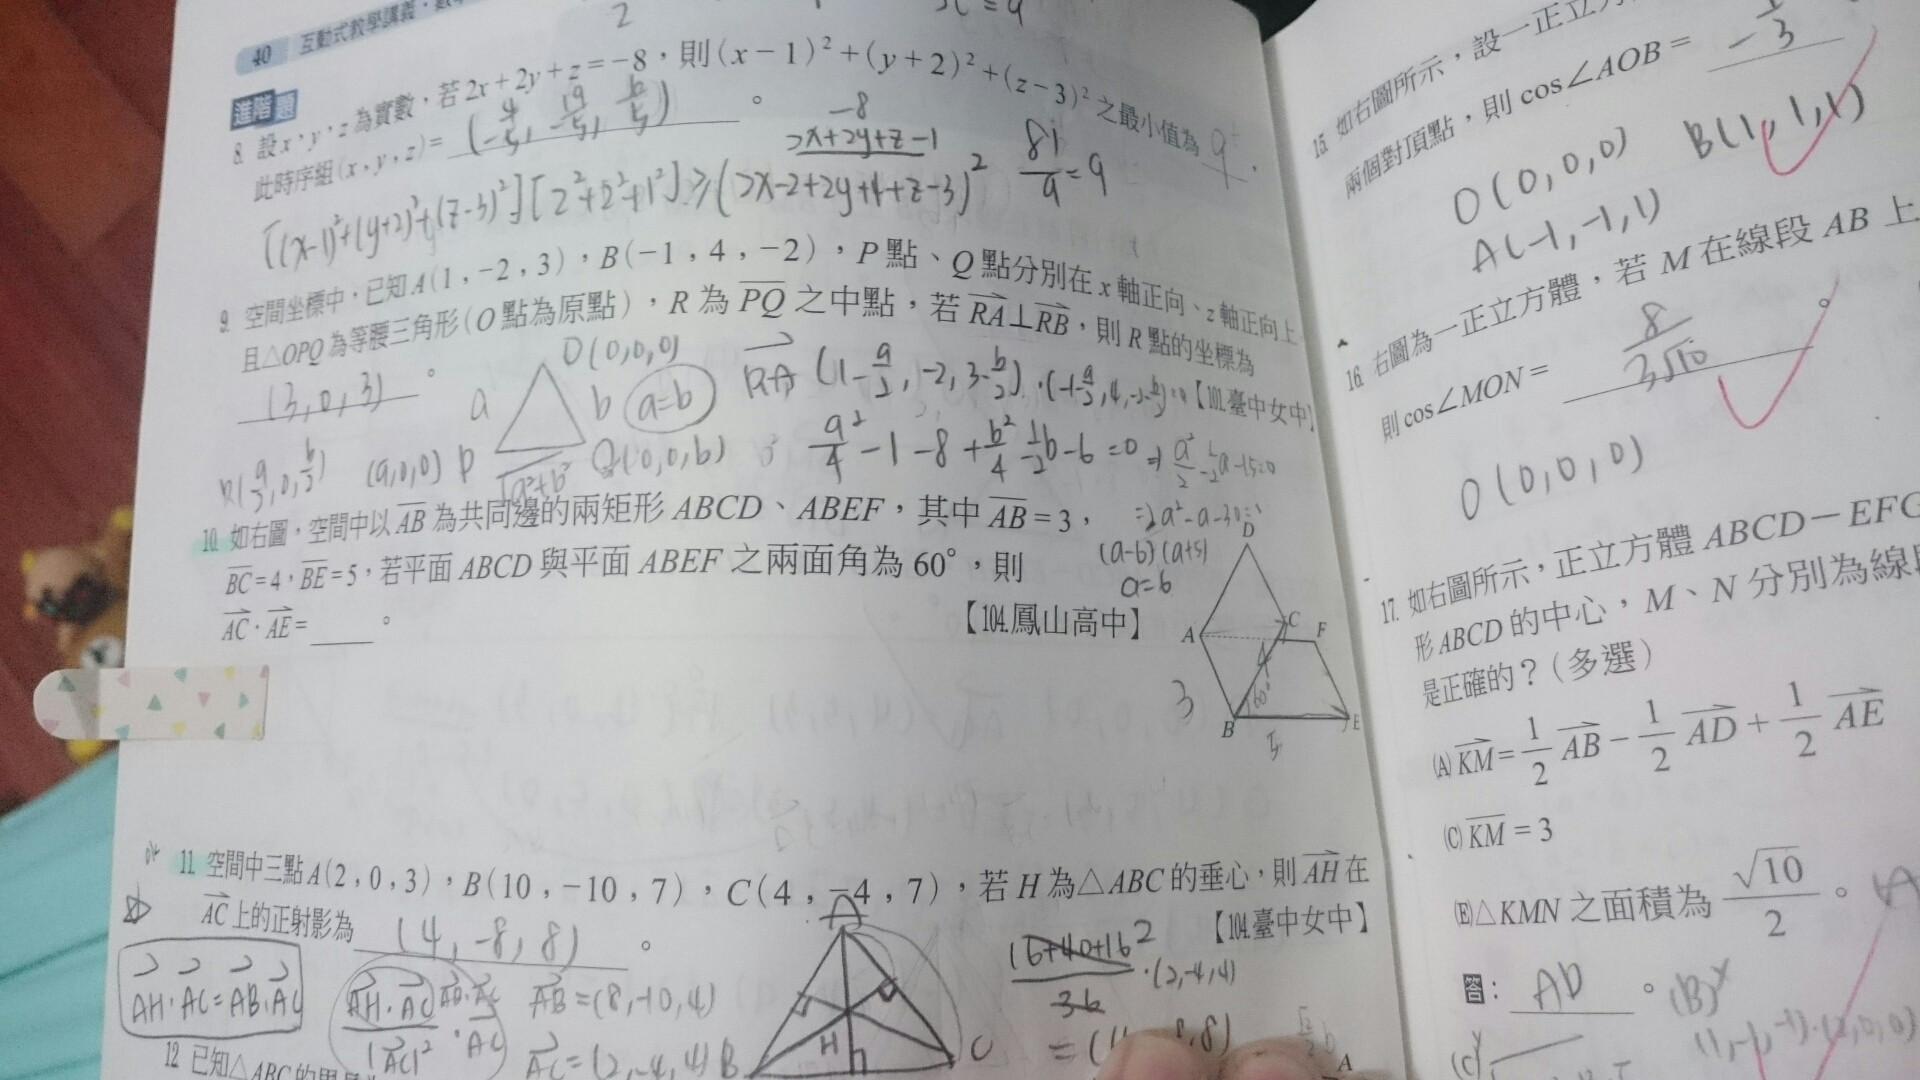 40 互動式教學講義．數
進階題
8. 設x、y、z為實數，若2x+2y+z=-8，則(x-1)²+(y+2)²+(z-3)²之最小值為 9，
此時序組(x,y,z)=
-8
2x+2y+z-1
81/9=9
[(x-1)²+(y+2)²+(z-3)²][2²+2²+1²]≥(2x-2+2y+4+z-3)²
9. 空間坐標中，已知A(1,-2,3)，B(-1,4,-2)，P點、Q點分別在x軸正向、z軸正向上
且△OPQ為等腰三角形(O點為原點)，R為PQ之中點，若RA⊥RB，則R點的坐標為
(3,0,3)。
【101.臺中女中】
O(0,0,0)
a
b
a=b
RA (1-a/2,-2,3-b/2)
R(a/2,0,b/2)
(a,0,0) P
Q(0,0,b)
√a²+b²
a²/4-1-8+b²/4-1/2b-6=0
(a-6)(a+5)
a=6
10. 如右圖，空間中以AB為共同邊的兩矩形ABCD、ABEF，其中AB=3，
BC=4，BE=5，若平面ABCD與平面ABEF之兩面角為60°，則
AC·AE=____。
【104.鳳山高中】
D
A
C
F
4
3
60°
B
E
5
11. 空間中三點A(2,0,3)，B(10,-10,7)，C(4,-4,7)，若H為△ABC的垂心，則AH在
AC上的正射影為 (4,-8,8)。
【104.臺中女中】
AH·AC=AB·AC
AH·AC AB·AC
|AC|² ·AC
AB=(8,-10,4)
AC=(2,-4,4)
A
B
H
C
16+40+16 2
36
·(2,-4,4)
12 已知△ABC的
15. 如右圖所示，設一正立方
兩個對頂點，則cos∠AOB=
O(0,0,0)
B(1,1,1)
A(-1,-1,1)
16. 右圖為一正立方體，若M在線段AB上
則cos∠MON= 8/3√10。
O(0,0,0)
17. 如右圖所示，正立方體ABCD－EFG
形ABCD的中心，M、N分別為線
是正確的？(多選)
(A)KM=1/2AB-1/2AD+1/2AE
(C)KM=3
(E)△KMN之面積為√10/2。
答：AD。
(B)
(C)